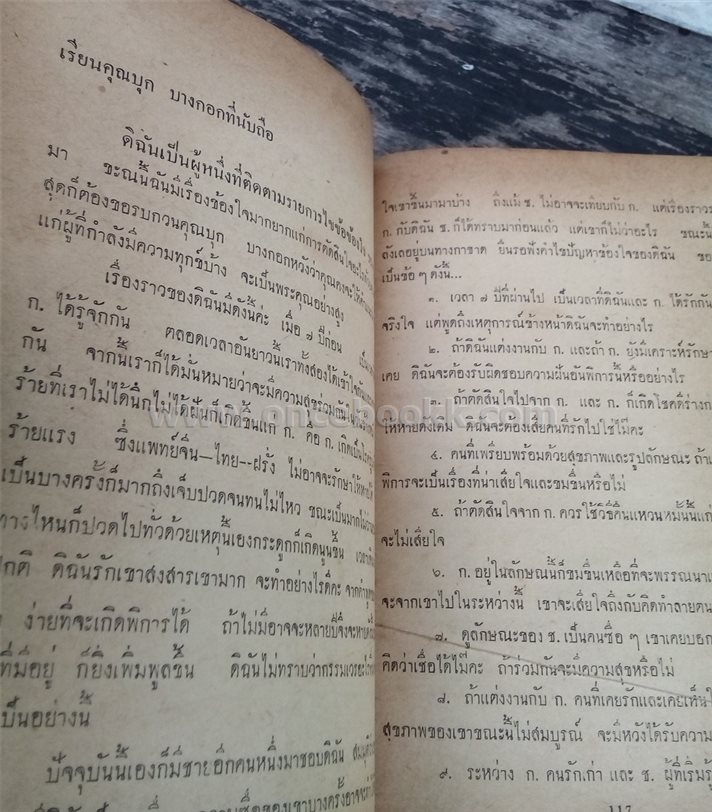 เรียนคุณบุก บางกอกที่นับถือ
ดิฉันเป็นผู้หนึ่งที่ติดตามรายการไขข้อข้องใจ
มา ขะณนี้ฉันมีเรื่องข้องใจมากยากแก่การตัดสินใจ
สุดก็ต้องขอรบกวนคุณบุก บางกอกหวังว่าคุณคงจะให้
แก่ผู้ที่กำลังมีความทุกข์บ้าง จะเป็นพระคุณอย่างสูง
เรื่องราวของดิฉันมีดังนี้ค่ะ เมื่อ ๗ ปีก่อน
ก. ได้รู้จักกัน ตลอดเวลาอันยาวนั้นเราทั้งสองได้เข้าใจ
กัน จากนั้นเราก็ได้มั่นหมายว่าจะมีความสุขร่วมกัน
ร้ายที่เราไม่ได้นึกไม่ได้ฝันก็เกิดขึ้นแก่ ก. คือ ก. เกิดเป็นโรค
ร้ายแรง ซึ่งแพทย์จีน—ไทย--ฝรั่ง ไม่อาจจะรักษาให้
เป็นบางครั้งก็มากถึงเจ็บปวดจนทนไม่ไหว ขณะเป็นมาก
ทางไหนก็ปวดไปทั่วด้วยเหตุนี้เองกระดูกก็เกิดนูนขึ้น
ปกติ ดิฉันรักเขาสงสารเขามาก จะทำอย่างไรดีคะ
ง่ายที่จะเกิดพิการได้ ถ้าไม่มีอาจจะหลายปีจึงจะหาย
ที่มีอยู่ ก็ยิ่งเพิ่มพูลขึ้น ดิฉันไม่ทราบว่ากรรมเวร
เป็นอย่างนี้
ปัจจุบันนี้เองก็มีชายอีกคนหนึ่งมาชอบดิฉัน
ใจเขาขึ้นมามาบ้าง ถึงแม้ ช. ไม่อาจจะเทียบกับ ก. แต่เรื่องราว
ก. กับดิฉัน ช. ก็ได้ทราบมาก่อนแล้ว แต่เขาก็ไม่ว่าอะไร ขณะนี้
ลังเลอยู่บนทางกาชาด ยืนรอฟังคำไขปัญหาข้องใจของดิฉัน ขอ
เป็นข้อ ๆ ดังนี้...
๑. เวลา ๗ ปีที่ผ่านไป เป็นเวลาที่ดิฉันและ ก. ได้รักกัน
จริงใจ แต่พูดถึงเหตุการณ์ข้างหน้าดิฉันจะทำอย่างไร
๒. ถ้าดิฉันแต่งงานกับ ก. และถ้า ก. ยังมีเคราะห์รักษา
เคย ดิฉันจะต้องรับผิดชอบความฝันอันพิการนั้นหรืออย่างไร
๓. ถ้าตัดสินใจไปจาก ก. และ ก. ก็เกิดโชคดีร่างกาย
ให้หายดังเดิม ดิฉันจะต้องเสียคนที่รักไปใช่ไม๊คะ
๔. คนที่เพรียบพร้อมด้วยสุขภาพและรูปลักษณะ ถ้า
พิการจะเป็นเรื่องที่น่าเสียใจและขมขื่นหรือไม่
๕. ถ้าตัดสินใจจาก ก. ควรใช้วิธีคืนแหวนหมั้นนี้แก่
จะไม่เสียใจ
๖. ก. อยู่ในลักษณะนี้ก็ขมขื่นเหลือที่จะพรรณนา
จะจากเขาไปในระหว่างนี้ เขาจะเสียใจถึงกับคิดทำลายตน
๗. ดูลักษณะของ ช. เป็นคนซื่อ ๆ เขาเคยบอก
คิดว่าเชื่อได้ไม๊คะ ถ้าร่วมกันจะมีความสุขหรือไม่
๘. ถ้าแต่งงานกับ ก. คนที่เคยรักและเคยเห็นใจ
สุขภาพของเขาขณะนี้ไม่สมบูรณ์ จะมีหวังได้รับความ
๙. ระหว่าง ก. คนรักเก่า และ ช. ผู้ที่เริ่มรู้